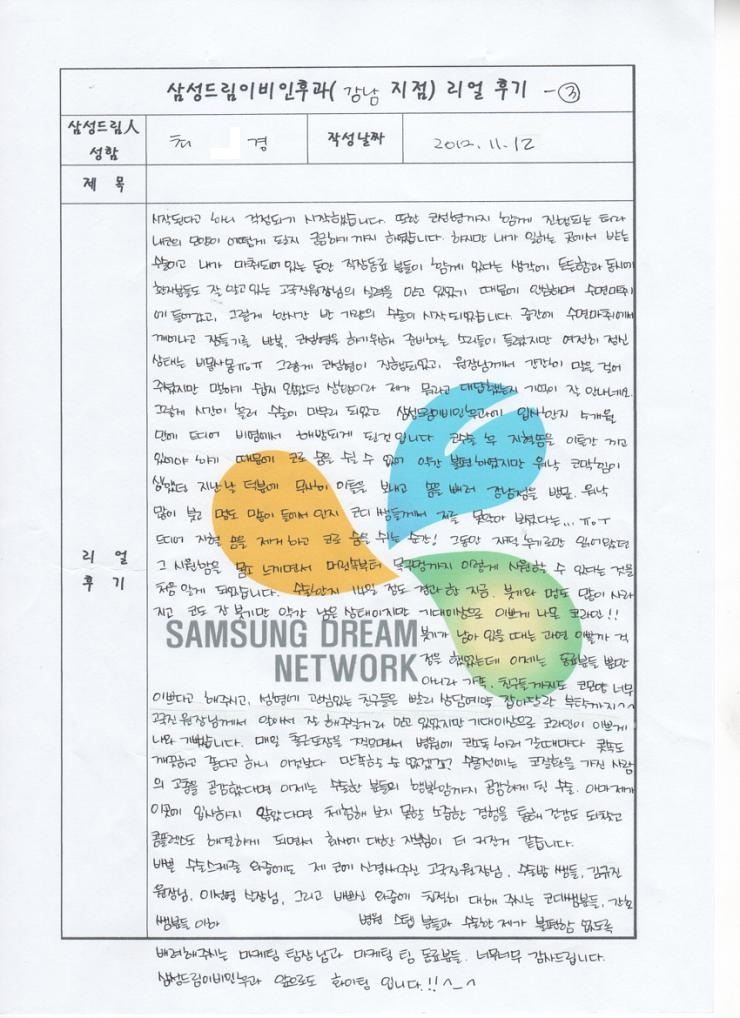 삼성드림이비인후과( 강남 지점) 리얼 후기 - ③
삼성드림人 성함
최 경
작성날짜
2012. 11. 12
제 목
리 얼 후 기
시작된다고 하니 걱정되기 시작했습니다. 또한 코성형까지 함께 진행되는 터라
내코의 모양이 어떻게 될지 궁금하기까지 하였습니다. 하지만 내가 일하는 곳에서 받는
수술이고 내가 마취되어 있는 동안 직장동료 분들이 함께 있다는 생각에 든든함과 동시에
환자분들도 잘 알고 있는 고국진원장님의 실력을 믿고 있었기 때문에 안심하며 수면마취
에 들어갔고, 그렇게 한시간 반 가량의 수술이 시작되었습니다. 중간에 수면마취에서
깨어나고 잠들기를 반복. 코성형을 하기위해 준비하는 소리들이 들렸지만 여전히 정신
상태는 비몽사몽ㅠㅇㅠ 그렇게 코성형이 진행되었고, 원장님께서 간간히 말을 걸어
주셨지만 말하기 쉽지 않았던 상황이라 제가 뭐라고 대답했는지 기억이 잘 안나네요.
그렇게 시간이 흘러 수술이 마무리 되었고 삼성드림이비인후과에 입사한지 5개월
만에 드디어 비염에서 해방되게 된것입니다. 코수술 후 지혈솜을 이틀간 끼고
있어야 하기 때문에 코로 숨을 쉴 수 없어 약간 불편하였지만 워낙 코막힘이
심했던 지난날 덕분에 무사히 이틀을 보내고 솜을 빼러 강남점을 방문. 워낙
많이 붓고 멍도 많이 들어서 인지 코디 쌤들께서 저를 못알아 보셨다는... ㅠㅇㅜ
드디어 지혈 솜을 제거하고 코로 숨을 쉬는 순간! 그동안 저적 누기로만 읽어왔던
그 시원함을 몸소 느끼면서 머릿속부터 목구멍까지 이렇게 시원할 수 있다는 것을
처음 알게 되었습니다. 수술한지 14일 정도 경과한 지금. 붓기와 멍도 많이 사라
지고 코도 잔 붓기만 약간 남은 상태이지만 기대이상으로 이쁘게 나온 코라인!!
붓기가 남아 있을 때는 과연 이쁠까 걱
정을 했었는데 이제는 동료분들 뿐만
아니라 가족, 친구들까지도 코모양 너무
이쁘다고 해주시고, 성형에 관심있는 친구들은 빨리 상담예약 잡아달라 부탁까지^^
고국진원장님께서 알아서 잘 해주실거라 믿고 있었지만 기대이상으로 코라인이 이쁘게
나와 기쁩니다. 매일 출근도장을 찍으면서 병원에 코소독 하러 갈때마다 콧속도
깨끗하고 좋다고 하니 이것보다 만족할 순 없겠죠? 수술전에는 코질환을 가진 사람
의 고통을 공감했다면 이제는 수술한 분들의 행복함까지 공감하게 된 수술. 아마 제가
이곳에 입사하지 않았다면 체험해 보지 못할 소중한 경험을 통해 건강도 되찾고
콤플렉스도 해결하게 되면서 회사에 대한 자부심이 더 커진거 같습니다.
바쁜 수술스케줄 와중에도 제 코에 신경써주신 고국진원장님, 수술방 쌤들, 김국진
원장님, 이선영 실장님, 그리고 바쁘신 와중에 친절히 대해 주시는 코디쌤분들, 간호
쌤분들 이하 병원 스텝 분들과 수술한 제가 불편함 없도록
배려해주시는 마케팅 팀장님과 마케팅 팀 동료분들. 너무너무 감사드립니다.
삼성드림이비인후과 앞으로도 화이팅 입니다.!! ^_^
SAMSUNG DREAM
NETWORK